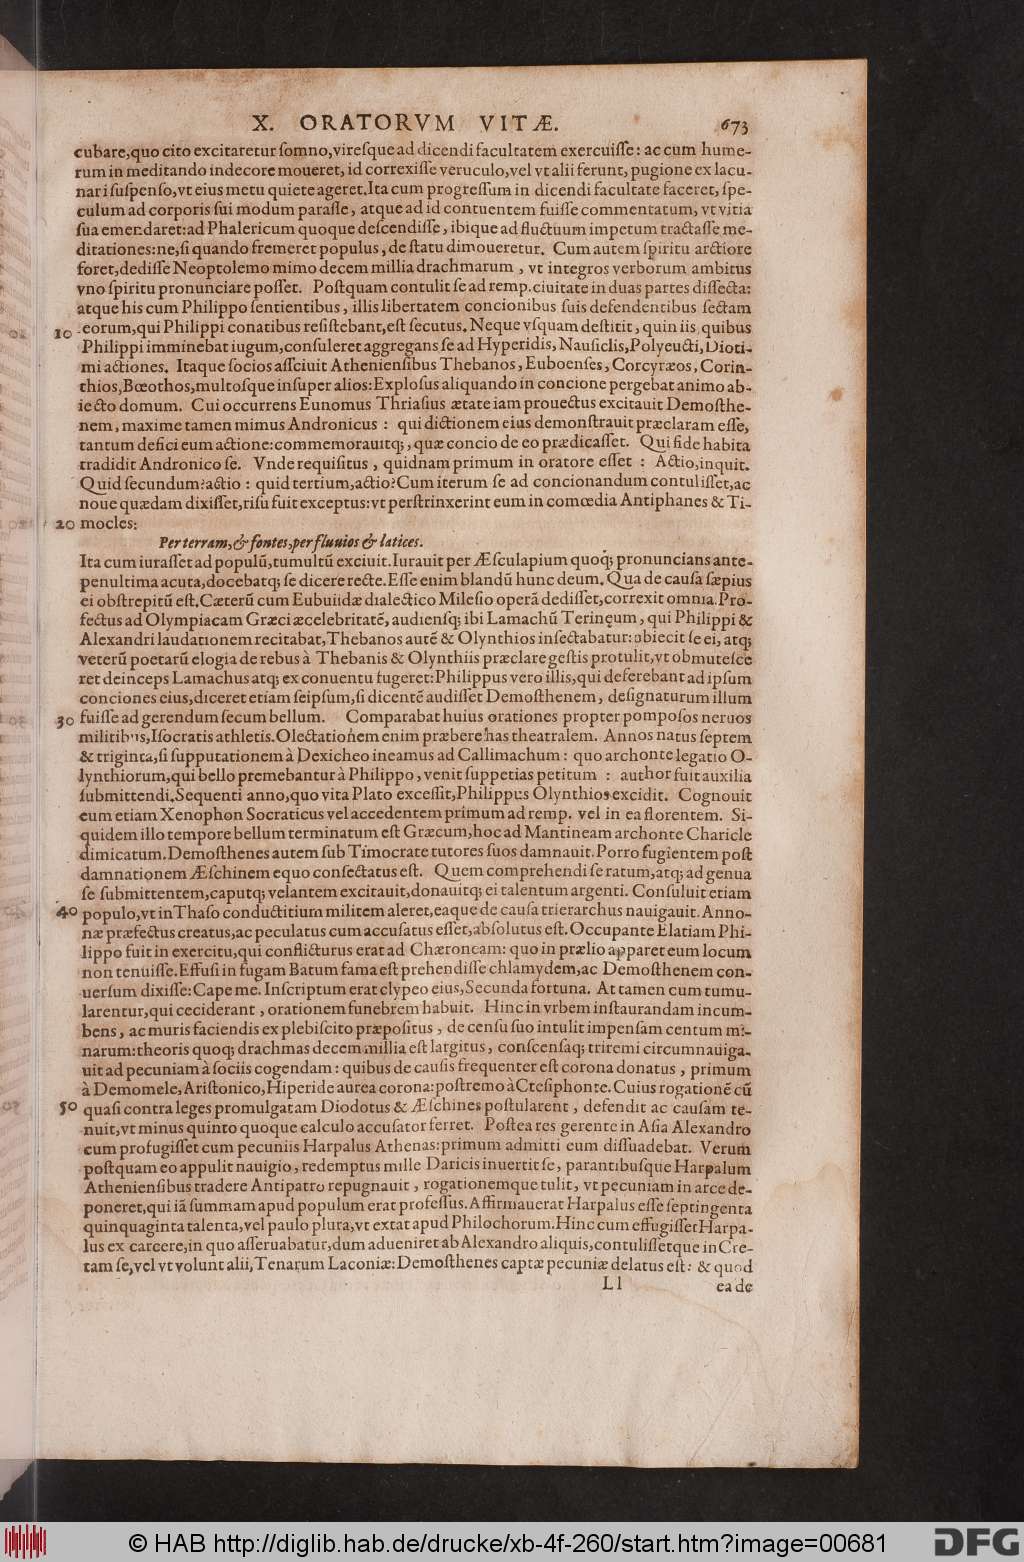 X. ORATORVM VITÆ. 673
cubare,quo cito excitaretur ſomno,vireſque ad dicendi facultatem exercuiſſe: ac cum hume-
rum in meditando indecore moueret, id correxiſſe veruculo, vel vt alii ferunt, pugione ex lacu-
nari ſuſpenſo,vt eius metu quiete ageret.Ita cum progreſſum in dicendi facultate faceret, ſpe-
culum ad corporis ſui modum paraſſe, atque ad id contuentem fuiſſe commentatum, vt vitia
ſua emendaret:ad Phalericum quoque deſcendiſſe, ibique ad fluctuum impetum tractaſſe me-
ditationes:ne,ſi quando fremeret populus, de ſtatu dimoueretur. Cum autem ſpiritu arctiore
foret,dediſſe Neoptolemo mimo decem millia drachmarum, vt integros verborum ambitus
vno ſpiritu pronunciare poſſet. Poſtquam contulit ſe ad remp.ciuitate in duas partes diſſecta:
atque his cum Philippo ſentientibus, illis libertatem concionibus ſuis defendentibus ſectam
10 eorum,qui Philippi conatibus reſiſtebant,eſt ſecutus. Neque vſquam deſtitit, quin iis quibus
Philippi imminebat iugum,conſuleret aggregans ſe ad Hyperidis, Nauſiclis,Polyeucti,Dioti-
mi actiones. Itaque ſocios aſſciuit Athenienſibus Thebanos, Euboenſes, Corcyræos, Corin-
thios,Bœothos,multoſque inſuper alios:Exploſus aliquando in concione pergebat animo ab-
iecto domum. Cui occurrens Eunomus Thriaſius ætate iam prouectus excitauit Demoſthe-
nem, maxime tamen mimus Andronicus: qui dictionem eius demonſtrauit præclaram eſſe,
tantum defici eum actione:commemorauitq;, quæ concio de eo prædicaſſet. Qui fide habita
tradidit Andronico ſe. Vnde requiſitus, quidnam primum in oratore eſſet: Actio,inquit.
Quid ſecundum?actio: quid tertium,actio?Cum iterum ſe ad concionandum contuliſſet,ac
noue quædam dixiſſet,riſu fuit exceptus:vt perſtrinxerint eum in comœdia Antiphanes & Ti-
20 mocles:
Per terram,& fontes,per fluuios & latices.
Ita cum iuraſſet ad populũ,tumultũ exciuit.Iurauit per Æſculapium quoq; pronuncians ante-
penultima acuta,docebatq; ſe dicere recte.Eſſe enim blandũ hunc deum. Qua de cauſa ſæpius
ei obſtrepitũ eſt.Cæterũ cum Eubulidæ dialectico Mileſio operã dediſſet,correxit omnia.Pro-
fectus ad Olympiacam Græciæ celebritatẽ, audienſq; ibi Lamachũ Terinęum, qui Philippi &
Alexandri laudationem recitabat,Thebanos autẽ & Olynthios inſectabatur:obiecit ſe ei, atq;
veterũ poetarũ elogia de rebus à Thebanis & Olynthiis præclare geſtis protulit,vt obmuteſce
ret deinceps Lamachus atq; ex conuentu fugeret:Philippus vero illis,qui deferebant ad ipſum
conciones eius,diceret etiam ſeipſum,ſi dicentẽ audiſſet Demoſthenem, deſignaturum illum
30 fuiſſe ad gerendum ſecum bellum. Comparabat huius orationes propter pompoſos neruos
militibus,Iſocratis athletis.Olectationem enim præbere has theatralem. Annos natus ſeptem
& triginta,ſi ſupputationem à Dexicheo ineamus ad Callimachum: quo archonte legatio O-
lynthiorum,qui bello premebantur à Philippo, venit ſuppetias petitum: author fuit auxilia
ſubmittendi.Sequenti anno,quo vita Plato exceſſit,Philippus Olynthios excidit. Cognouit
eum etiam Xenophon Socraticus vel accedentem primum ad remp. vel in ea florentem. Si-
quidem illo tempore bellum terminatum eſt Græcum,hoc ad Mantineam archonte Charicle
dimicatum.Demoſthenes autem ſub Timocrate tutores ſuos damnauit.Porro fugientem poſt
damnationem Æſchinem equo conſectatus eſt. Quem comprehendi ſe ratum,atq; ad genua
ſe ſubmittentem,caputq; velantem excitauit,donauitq; ei talentum argenti. Conſuluit etiam
40 populo,vt in Thaſo conductitium militem aleret,eaque de cauſa trierarchus nauigauit. Anno-
næ præfectus creatus,ac peculatus cum accuſatus eſſet,abſolutus eſt.Occupante Elatiam Phi-
lippo fuit in exercitu,qui conflicturus erat ad Chæroneam: quo in prælio apparet eum locum
non tenuiſſe.Effuſi in fugam Batum fama eſt prehendiſſe chlamydem,ac Demoſthenem con-
uerſum dixiſſe:Cape me. Inſcriptum erat clypeo eius,Secunda fortuna. At tamen cum tumu-
larentur,qui ceciderant, orationem funebrem habuit. Hinc in vrbem inſtaurandam incum-
bens, ac muris faciendis ex plebiſcito præpoſitus, de cenſu ſuo intulit impenſam centum mi-
narum:theoris quoq; drachmas decem millia eſt largitus, conſcenſaq; triremi circumnauiga-
uit ad pecuniam à ſociis cogendam: quibus de cauſis frequenter eſt corona donatus, primum
à Demomele, Ariſtonico,Hiperide aurea corona:poſtremo à Cteſiphonte.Cuius rogationẽ cũ
50 quaſi contra leges promulgatam Diodotus & Æſchines poſtularent, defendit ac cauſam te-
nuit,vt minus quinto quoque calculo accuſator ferret. Poſtea res gerente in Aſia Alexandro
cum profugiſſet cum pecuniis Harpalus Athenas:primum admitti eum diſſuadebat. Verum
poſtquam eo appulit nauigio, redemptus mille Daricis inuertit ſe, parantibuſque Harpalum
Athenienſibus tradere Antipatro repugnauit, rogationemque tulit, vt pecuniam in arce de-
poneret,qui iã ſummam apud populum erat profeſſus.Affirmauerat Harpalus eſſe ſeptingenta
quinquaginta talenta,vel paulo plura,vt extat apud Philochorum.Hinc cum effugiſſet Harpa-
lus ex carcere,in quo aſſeruabatur,dum adueniret ab Alexandro aliquis,contuliſſetque in Cre-
tam ſe,vel vt volunt alii,Tenarum Laconiæ:Demoſthenes captæ pecuniæ delatus eſt: & quod
Ll ea de
© HAB http://diglib.hab.de/drucke/xb-4f-260/start.htm?image=00681 DFG